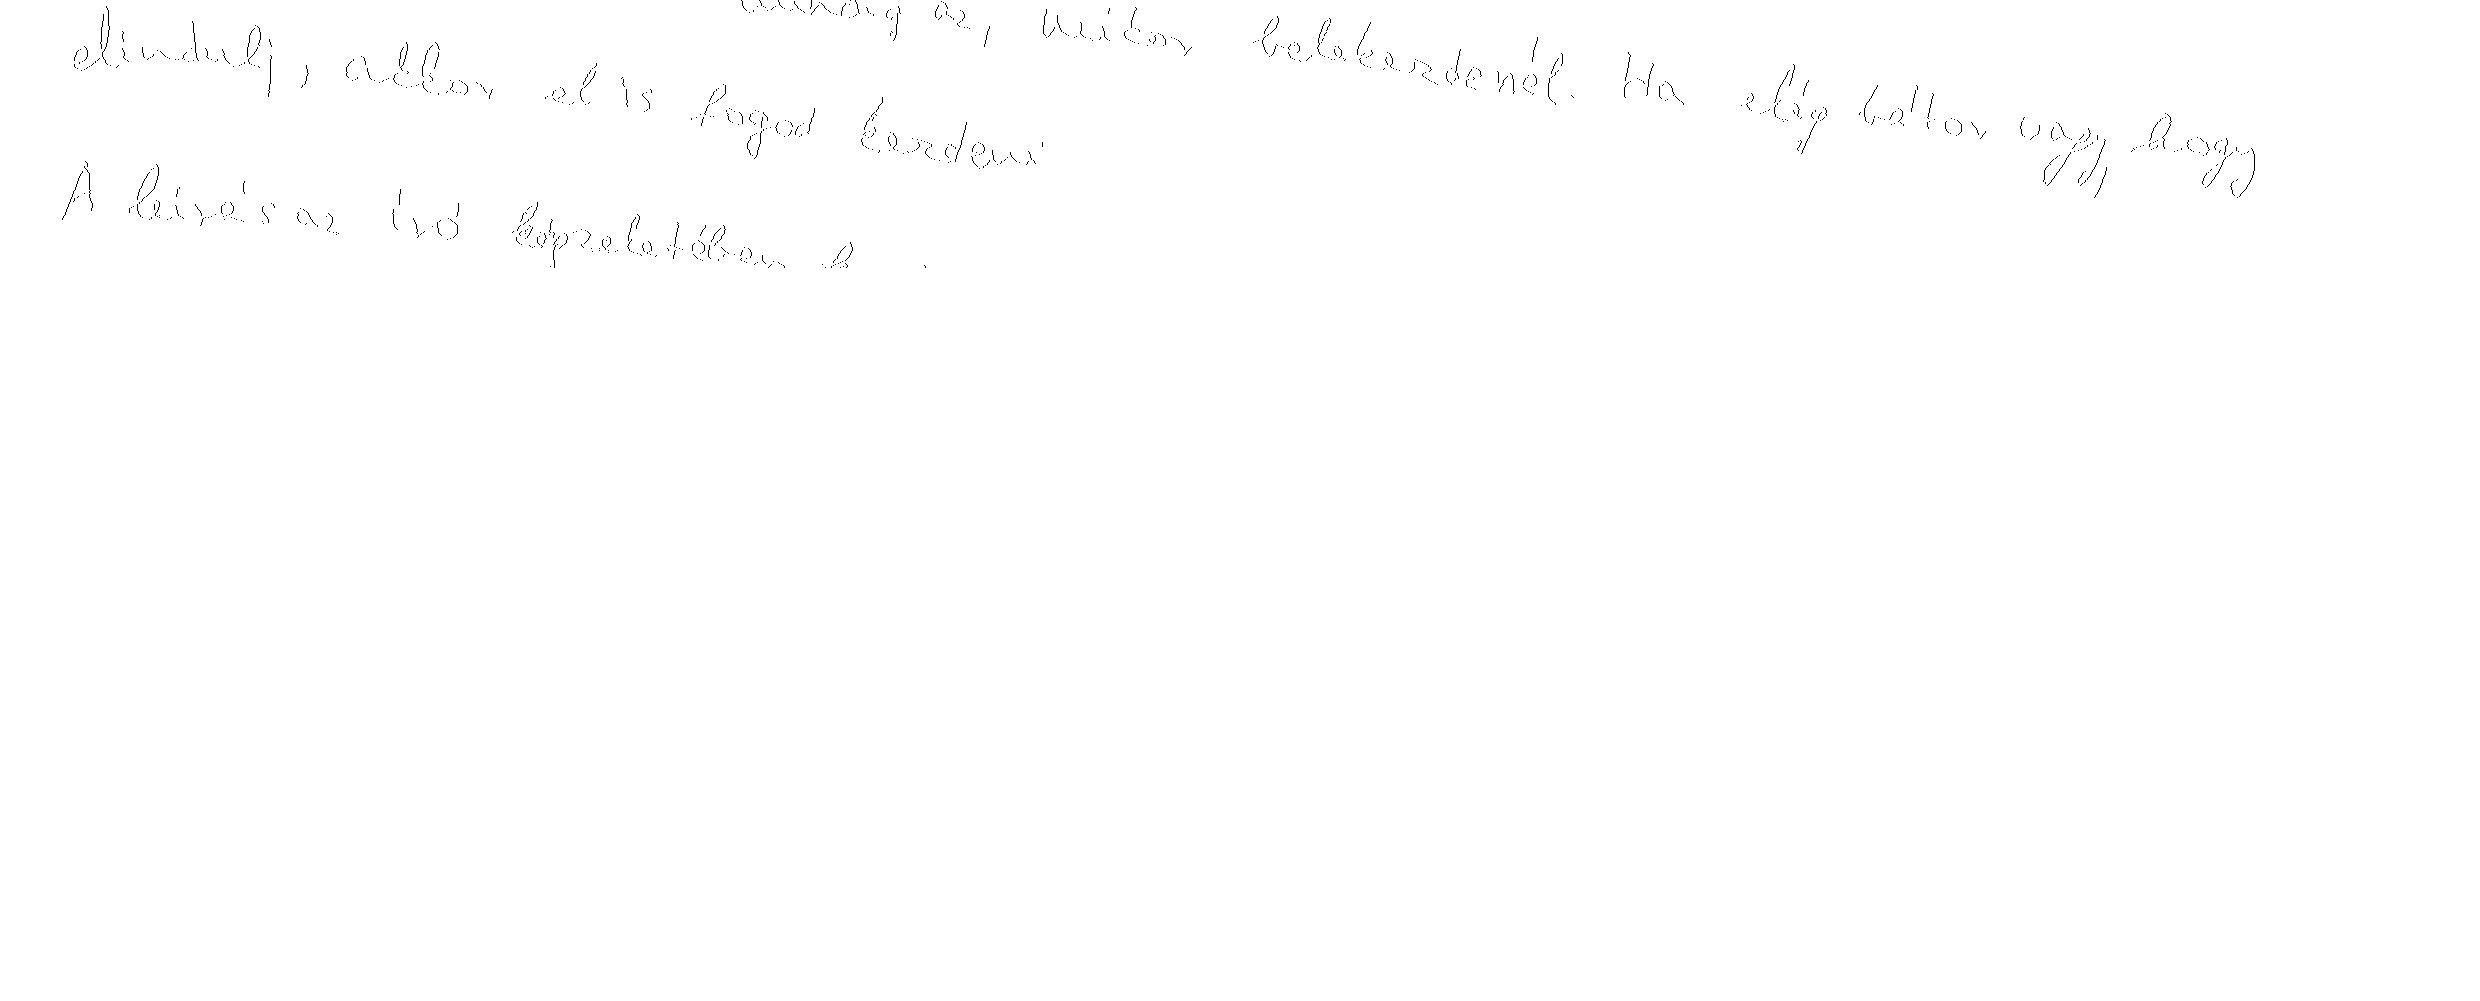 az, mikor belekezdenél. Ha elég bátor vagy, hogy
elindulj, akkor el is fogod kezdeni
A leírás az író képzeletében